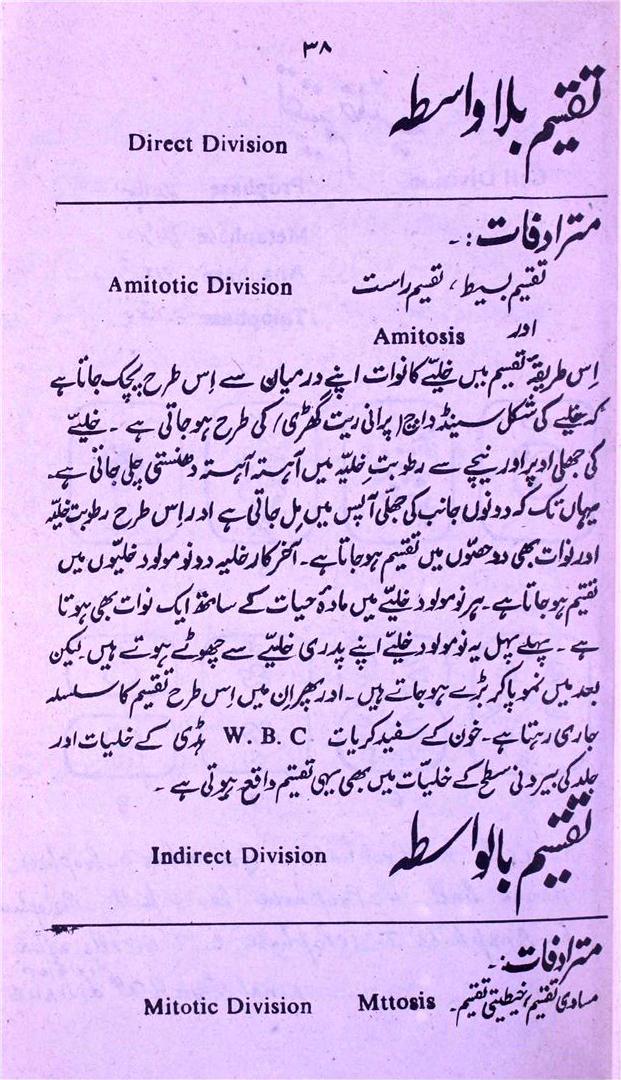 ۳۸
تقسیم بلا واسطہ
Direct Division
مترادفات :۔
تقسیم بسیط ، تقسیم راست Amitotic Division
اور Amitosis
اِس طریقۂ تقسیم میں خلیّے کا نوات اپنے درمیان سے اِس طرح پچک جاتا ہے
کہ خلیے کی شکل سینڈ واچ (پرانی ریت گھڑی) کی طرح ہوجاتی ہے ۔ خلیّے
کی جھلی اوپر اور نیچے سے رطوبت خلیّہ میں آہستہ آہستہ دھنستی چلی جاتی ہے۔
یہاں تک کہ دونوں جانب کی جھلّی آپس میں مِل جاتی ہے اور اِس طرح رطوبت خلیّہ
اور نوات بھی دو حصّوں میں تقسیم ہوجاتا ہے۔ آخر کار خلیہ دو نومولود خلیّوں میں
تقسیم ہوجاتا ہے۔ ہر نومولود خلیّے میں مادۂ حیات کے ساتھ ایک نوات بھی ہوتا
ہے ۔ پہلے پہل یہ نومولود خلیّے اپنے پدری خلیّے سے چھوٹے ہوتے ہیں۔ لیکن
بعد میں نمو پا کر بڑے ہوجاتے ہیں ۔ اور پھر اِن میں اِس طرح تقسیم کا سلسلہ
جاری رہتا ہے ۔ خون کے سفید کریات W. B. C ہڈی کے خلیات اور
جلد کی بیرونی سطح کے خلیّات میں بھی یہی تقسیم واقع ہوتی ہے ۔
تقسیم بالواسطہ
Indirect Division
مترادفات :۔
مساوی تقسیم، خیطیتی تقیم۔ Mttosis Mitotic Division